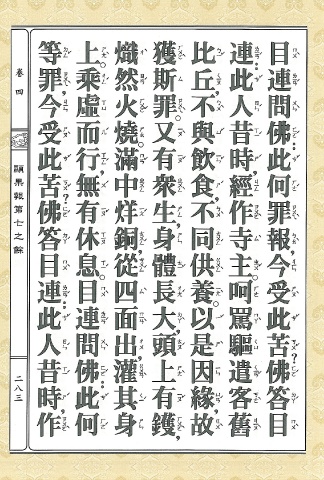 目連問佛：此何罪報，今受此苦？佛答目
連：此人昔時，經作寺主。呵罵驅遣客舊
比丘，不與飲食，不同供養。以是因緣，故
獲斯罪。又有眾生，身體長大，頭上有鑊，
熾然火燒。滿中烊銅，從四面出，灌其身
上。乘虛而行，無有休息。目連問佛：此何
等罪，今受此苦？佛答目連：此人昔時，作
卷四
顯果報第七之餘
二八三